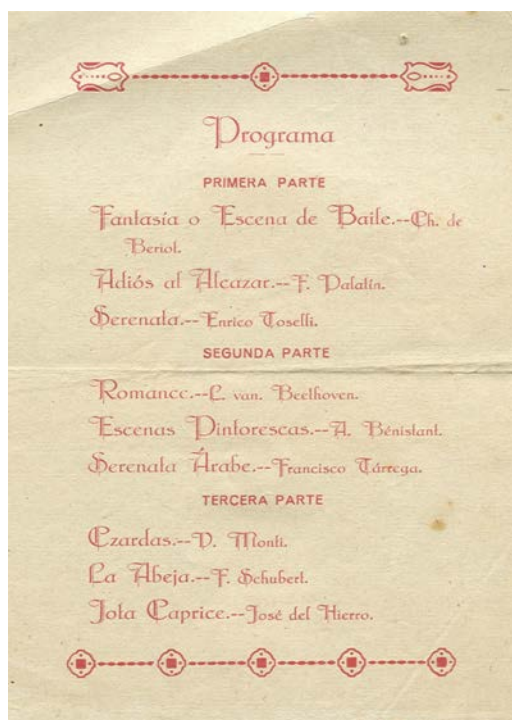 Programa
PRIMERA PARTE
Fantasía o Escena de Baile.--Ch. de
Beriot.
Adiós al Alcazar.--F. Palatín.
Serenata.--Enrico Toselli.
SEGUNDA PARTE
Romance.--L. van. Beethoven.
Escenas Pintorescas.--A. Bénistant.
Serenata Árabe.--Francisco Tárrega.
TERCERA PARTE
Czardas.--V. Monti.
La Abeja.--F. Schubert.
Jota Caprice.--José del Hierro.